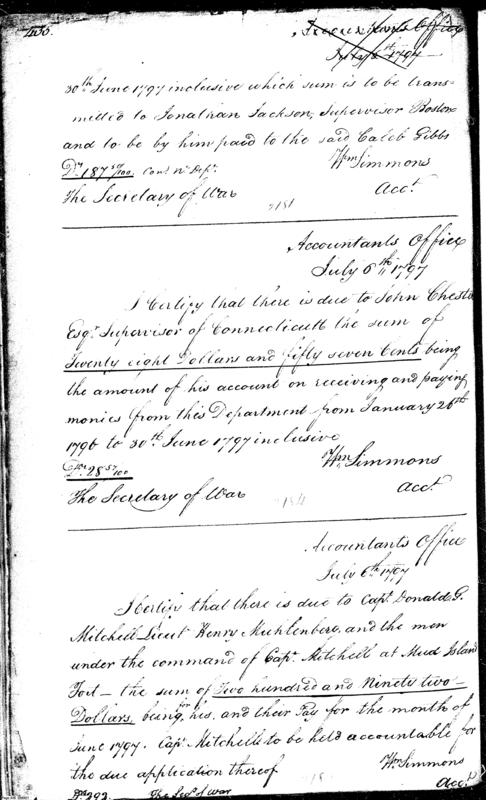 Accountants Office
July 6th 1797
30th June 1797 inclusive which sum is to be trans-
mitted to Jonathan Jackson, Supervisor Boston
and to be by him paid to the said Caleb Gibbs
Drs 187 50/100 Cont. Nl. Dept.
Wm Simmons
The Secretary of War
Acct.
Accountants Office
July 6th 1797
I Certify that there is due to John Chester
Esqr. Supervisor of Connecticutt the sum of
Twenty eight Dollars and fifty seven Cents being
the amount of his account on receiving and paying
monies from this Department from January 26th
1796 to 30th June 1797 inclusive
Wm Simmons
Drs 28 57/100
The Secretary of War
Acct.
Accountants Office
July 6th 1797
I Certify that there is due to Capt. Donald G.
Mitchell Lieut Henry Muhlenberg, and the men
under the command of Capt. Mitchell at Mud Island
Fort - the sum of Two hundred and Ninety two
Dollars being for his, and their Pay for the month of
June 1797. Capt. Mitchell to be held accountable for
the due application thereof
Wm Simmons
Drs 292. The Secy. of War
Acct.